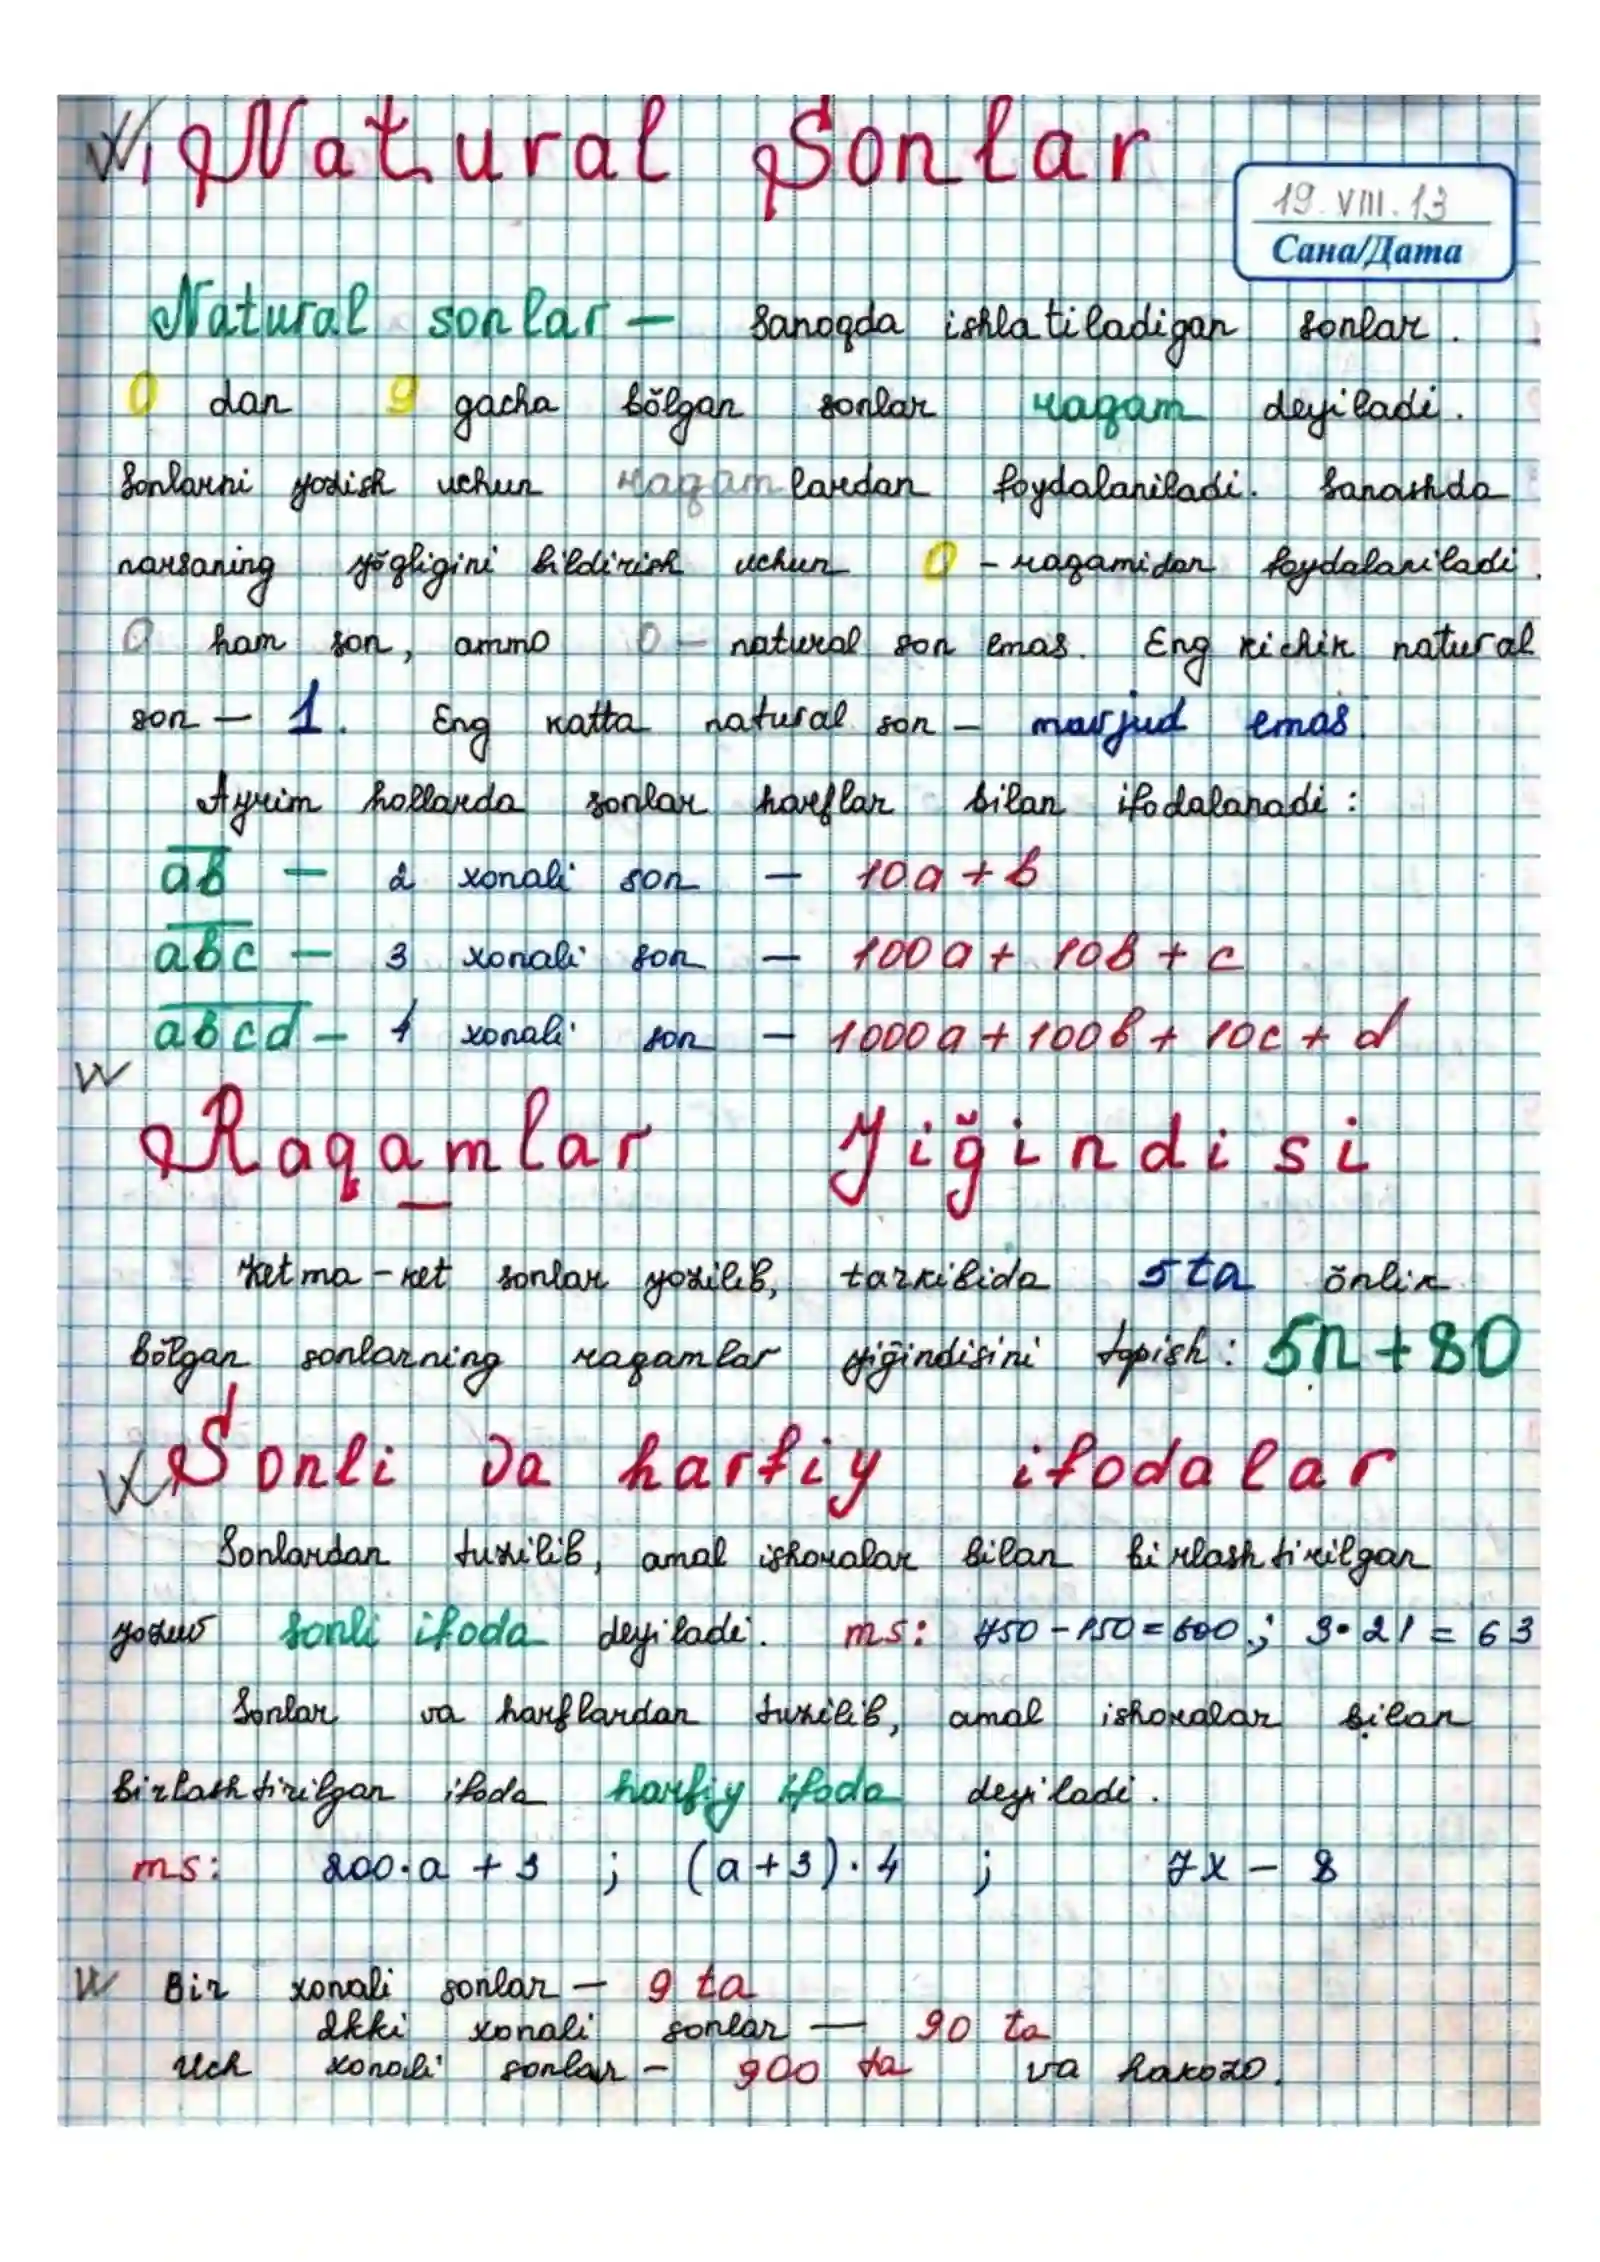 Natural Sonlar
19.VIII.13
Сана/Дата
Natural sonlar — sanoqda ishlatiladigan sonlar.
0 dan 9 gacha bŏlgan sonlar raqam deyiladi.
Sonlarni yozish uchun raqamlardan foydalaniladi. Sanashda
narsaning yŏqligini bildirish uchun 0 - raqamidan foydalaniladi.
0 ham son, ammo 0 - natural son emas. Eng kichik natural
son — 1. Eng katta natural son — mavjud emas.
Ayrim hollarda sonlar harflar bilan ifodalanadi:
a̅b̅ — 2 xonali son — 10a + b
a̅b̅c̅ — 3 xonali son — 100a + 10b + c
a̅b̅c̅d̅ — 4 xonali son — 1000a + 100b + 10c + d
Raqamlar Yiğindisi
Ketma-ket sonlar yozilib, tarkibida 5 ta ŏnlik
bŏlgan sonlarning raqamlar yiğindisini topish: 5n + 80
Sonli va harfiy ifodalar
Sonlardan tuzilib, amal ishoralar bilan birlashtirilgan
yozuv sonli ifoda deyiladi. ms: 750 - 150 = 600; 3·21 = 63
Sonlar va harflardan tuzilib, amal ishoralar bilan
birlashtirilgan ifoda harfiy ifoda deyiladi.
ms: 200·a + 3 ; (a+3)·4 ; 7x - 8
Bir xonali sonlar — 9 ta
Ikki xonali sonlar — 90 ta
Uch xonali sonlar — 900 ta va hakozo.